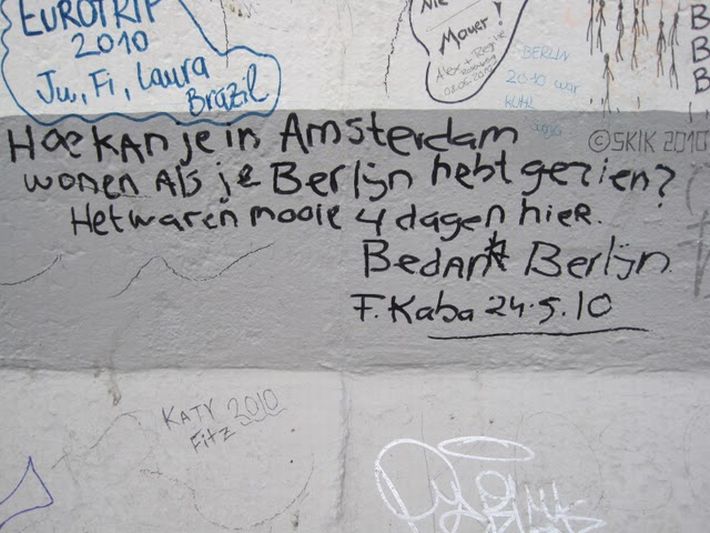 EUROTRIP
2010
Ju, Fi, Laura
Brazil
Nie
Mauer!
08.05.2010
BERLIN
2010 war
KÜHL
B
B
B
©SKIK 2010
HoekAn je in Amsterdam
wonen Als je Berlijn hebt gezien?
Het waren mooie 4 dagen hier.
BedAnkt Berlijn.
F. Kaba 24.5.10
KATY 2010
Fitz